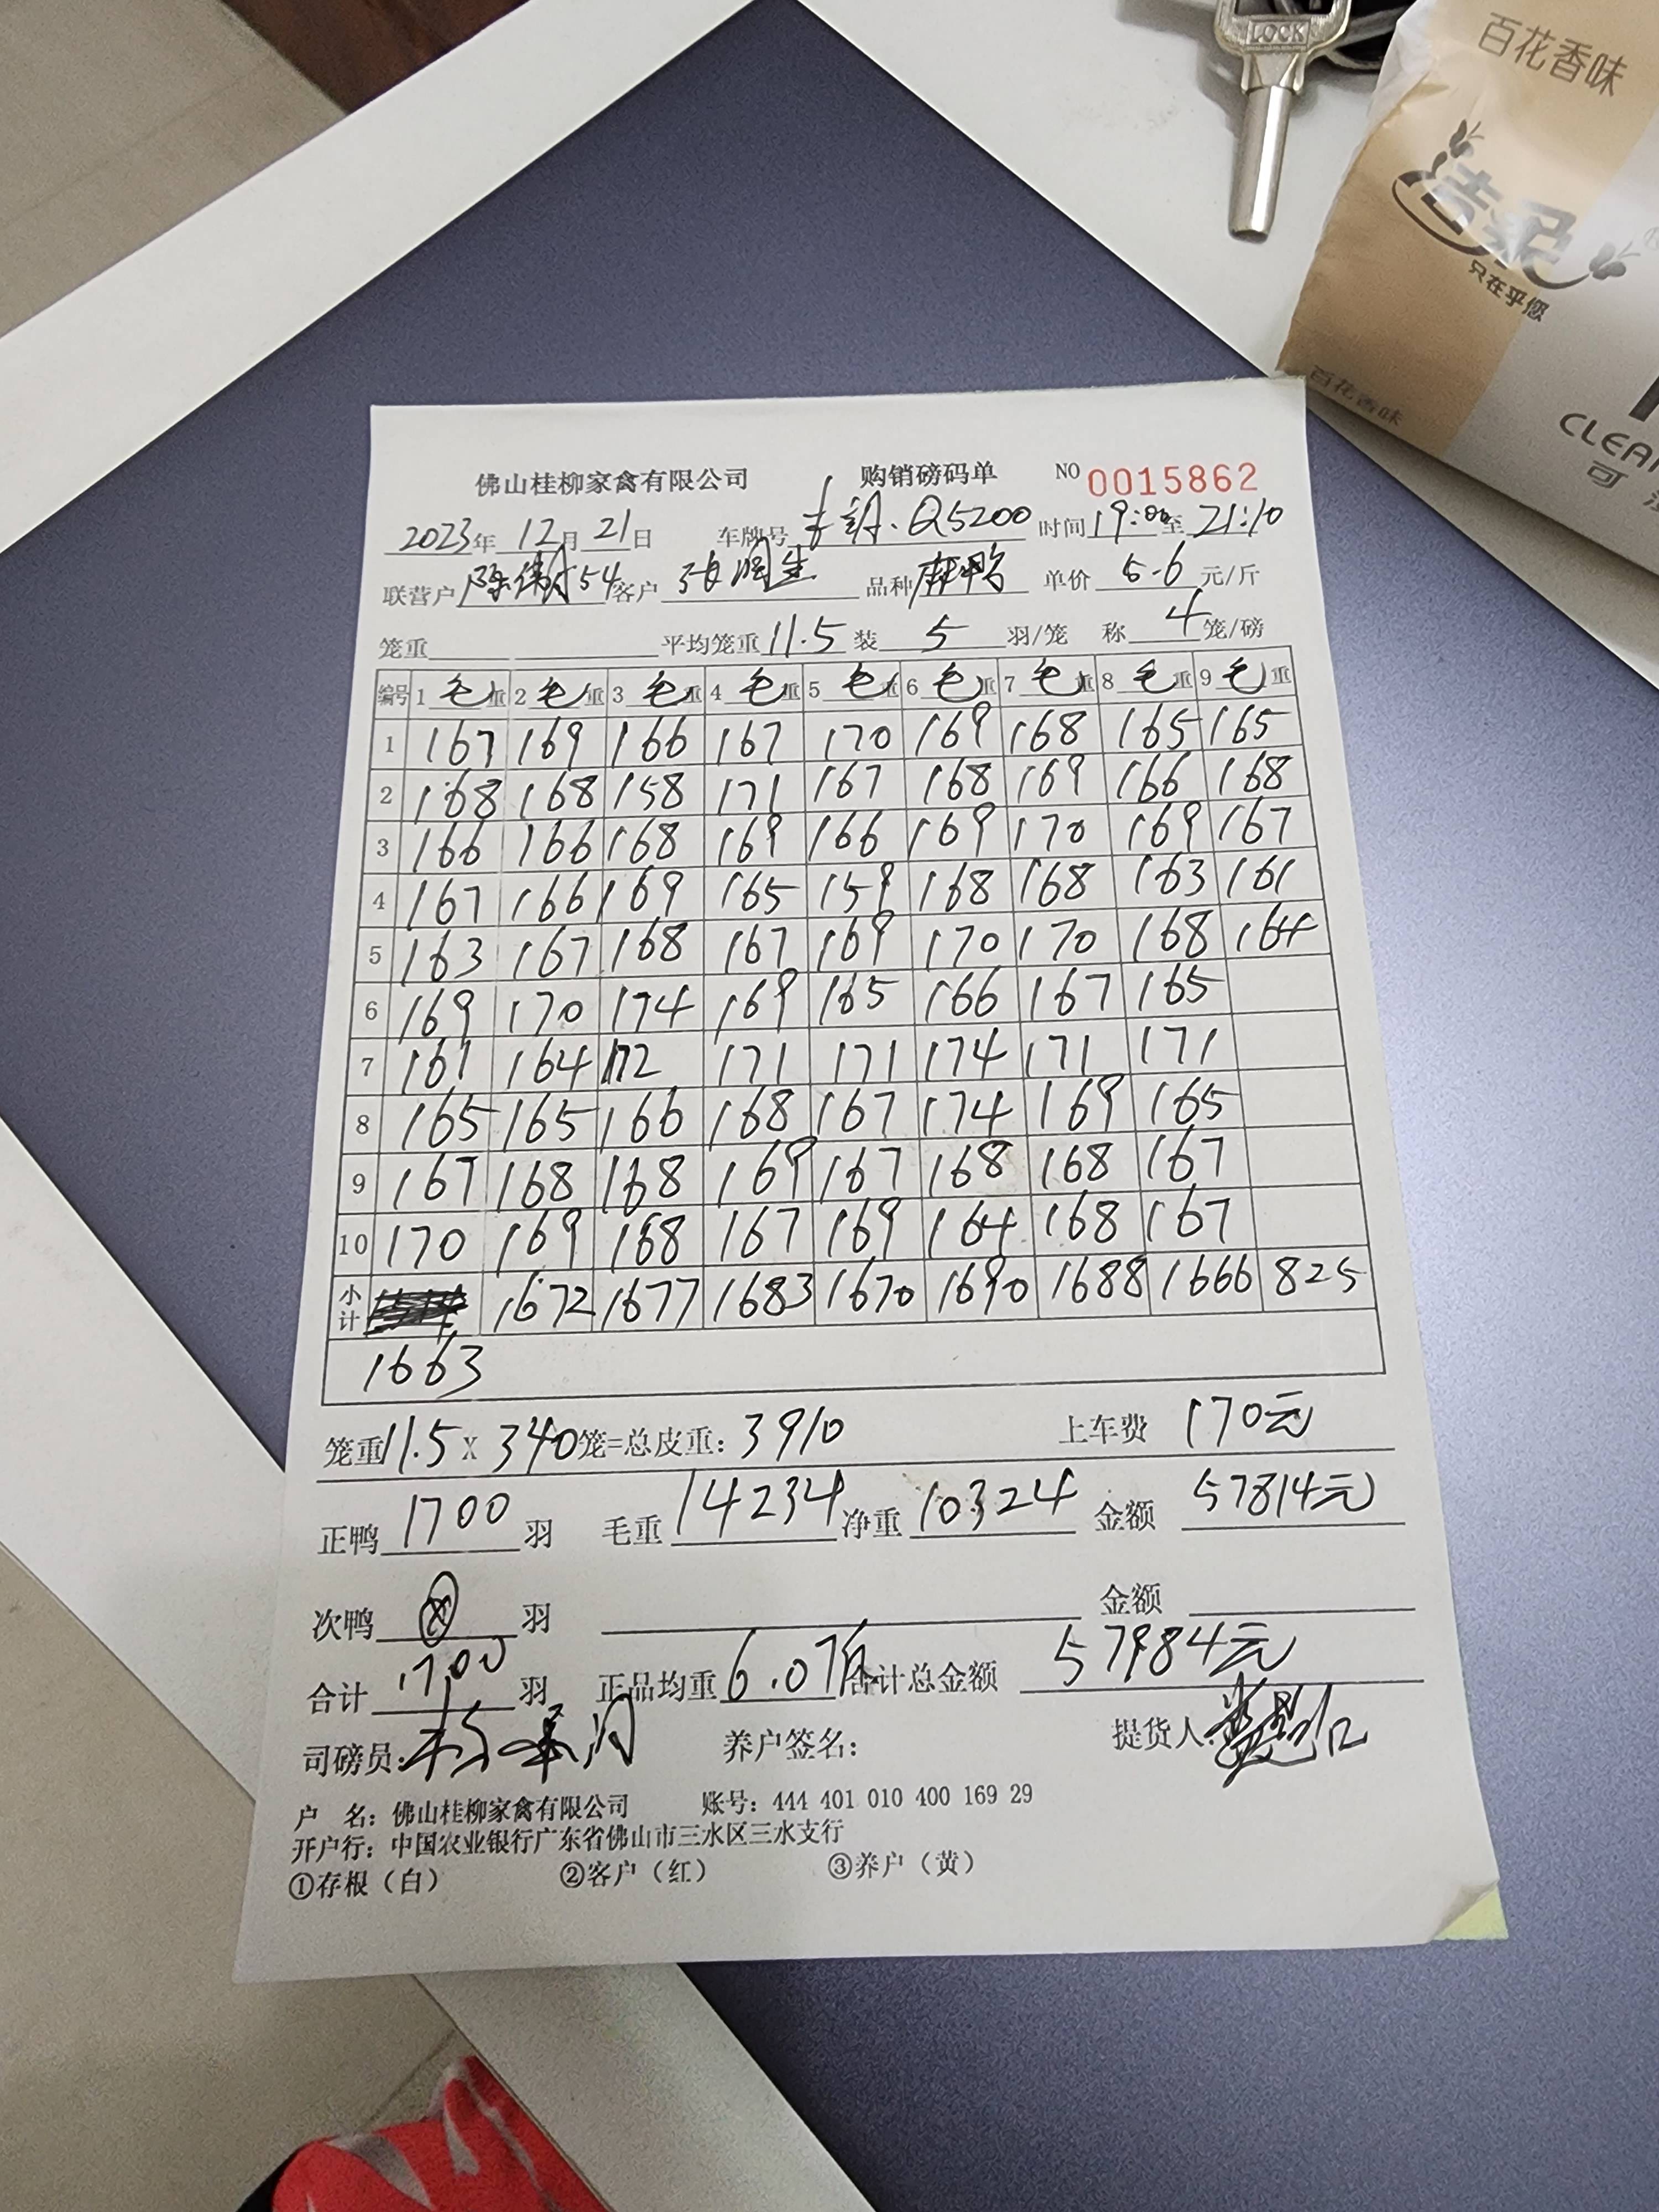 LOCK
百花香味
洁柔
只在乎您
百花香味
CLEA
可
佛山桂柳家禽有限公司 购销磅码单 NO 0015862
2023年 12月 21日 车牌号 Q5200 时间 19:00至 21:10
联营户 陈伟 54 客户 张润生 品种 麻鸭 单价 5.6 元/斤
笼重 平均笼重 11.5 装 5 羽/笼 称 4 笼/磅
编号 1 毛重 2 毛重 3 毛重 4 毛重 5 毛重 6 毛重 7 毛重 8 毛重 9 毛重
1 167 169 166 167 170 169 168 165 165
2 168 168 158 171 167 168 169 166 168
3 166 166 168 169 166 169 170 169 167
4 167 166 169 165 159 168 168 163 161
5 163 167 168 167 169 170 170 168 164
6 169 170 174 169 165 166 167 165
7 161 164 172 171 171 174 171 171
8 165 165 166 168 167 174 169 165
9 167 168 168 169 167 168 168 167
10 170 169 168 167 169 164 168 167
小计 1672 1677 1683 1670 1690 1688 1666 825
1663
笼重 11.5 X 340 笼=总皮重: 3910 上车费 170元
正鸭 1700 羽 毛重 14234 净重 10324 金额 57814元
次鸭 羽 金额
合计 1700 羽 正品均重 6.07斤 合计总金额 57984元
司磅员: 养户签名: 提货人:
户 名: 佛山桂柳家禽有限公司 账号: 444 401 010 400 169 29
开户行: 中国农业银行广东省佛山市三水区三水支行
①存根（白） ②客户（红） ③养户（黄）